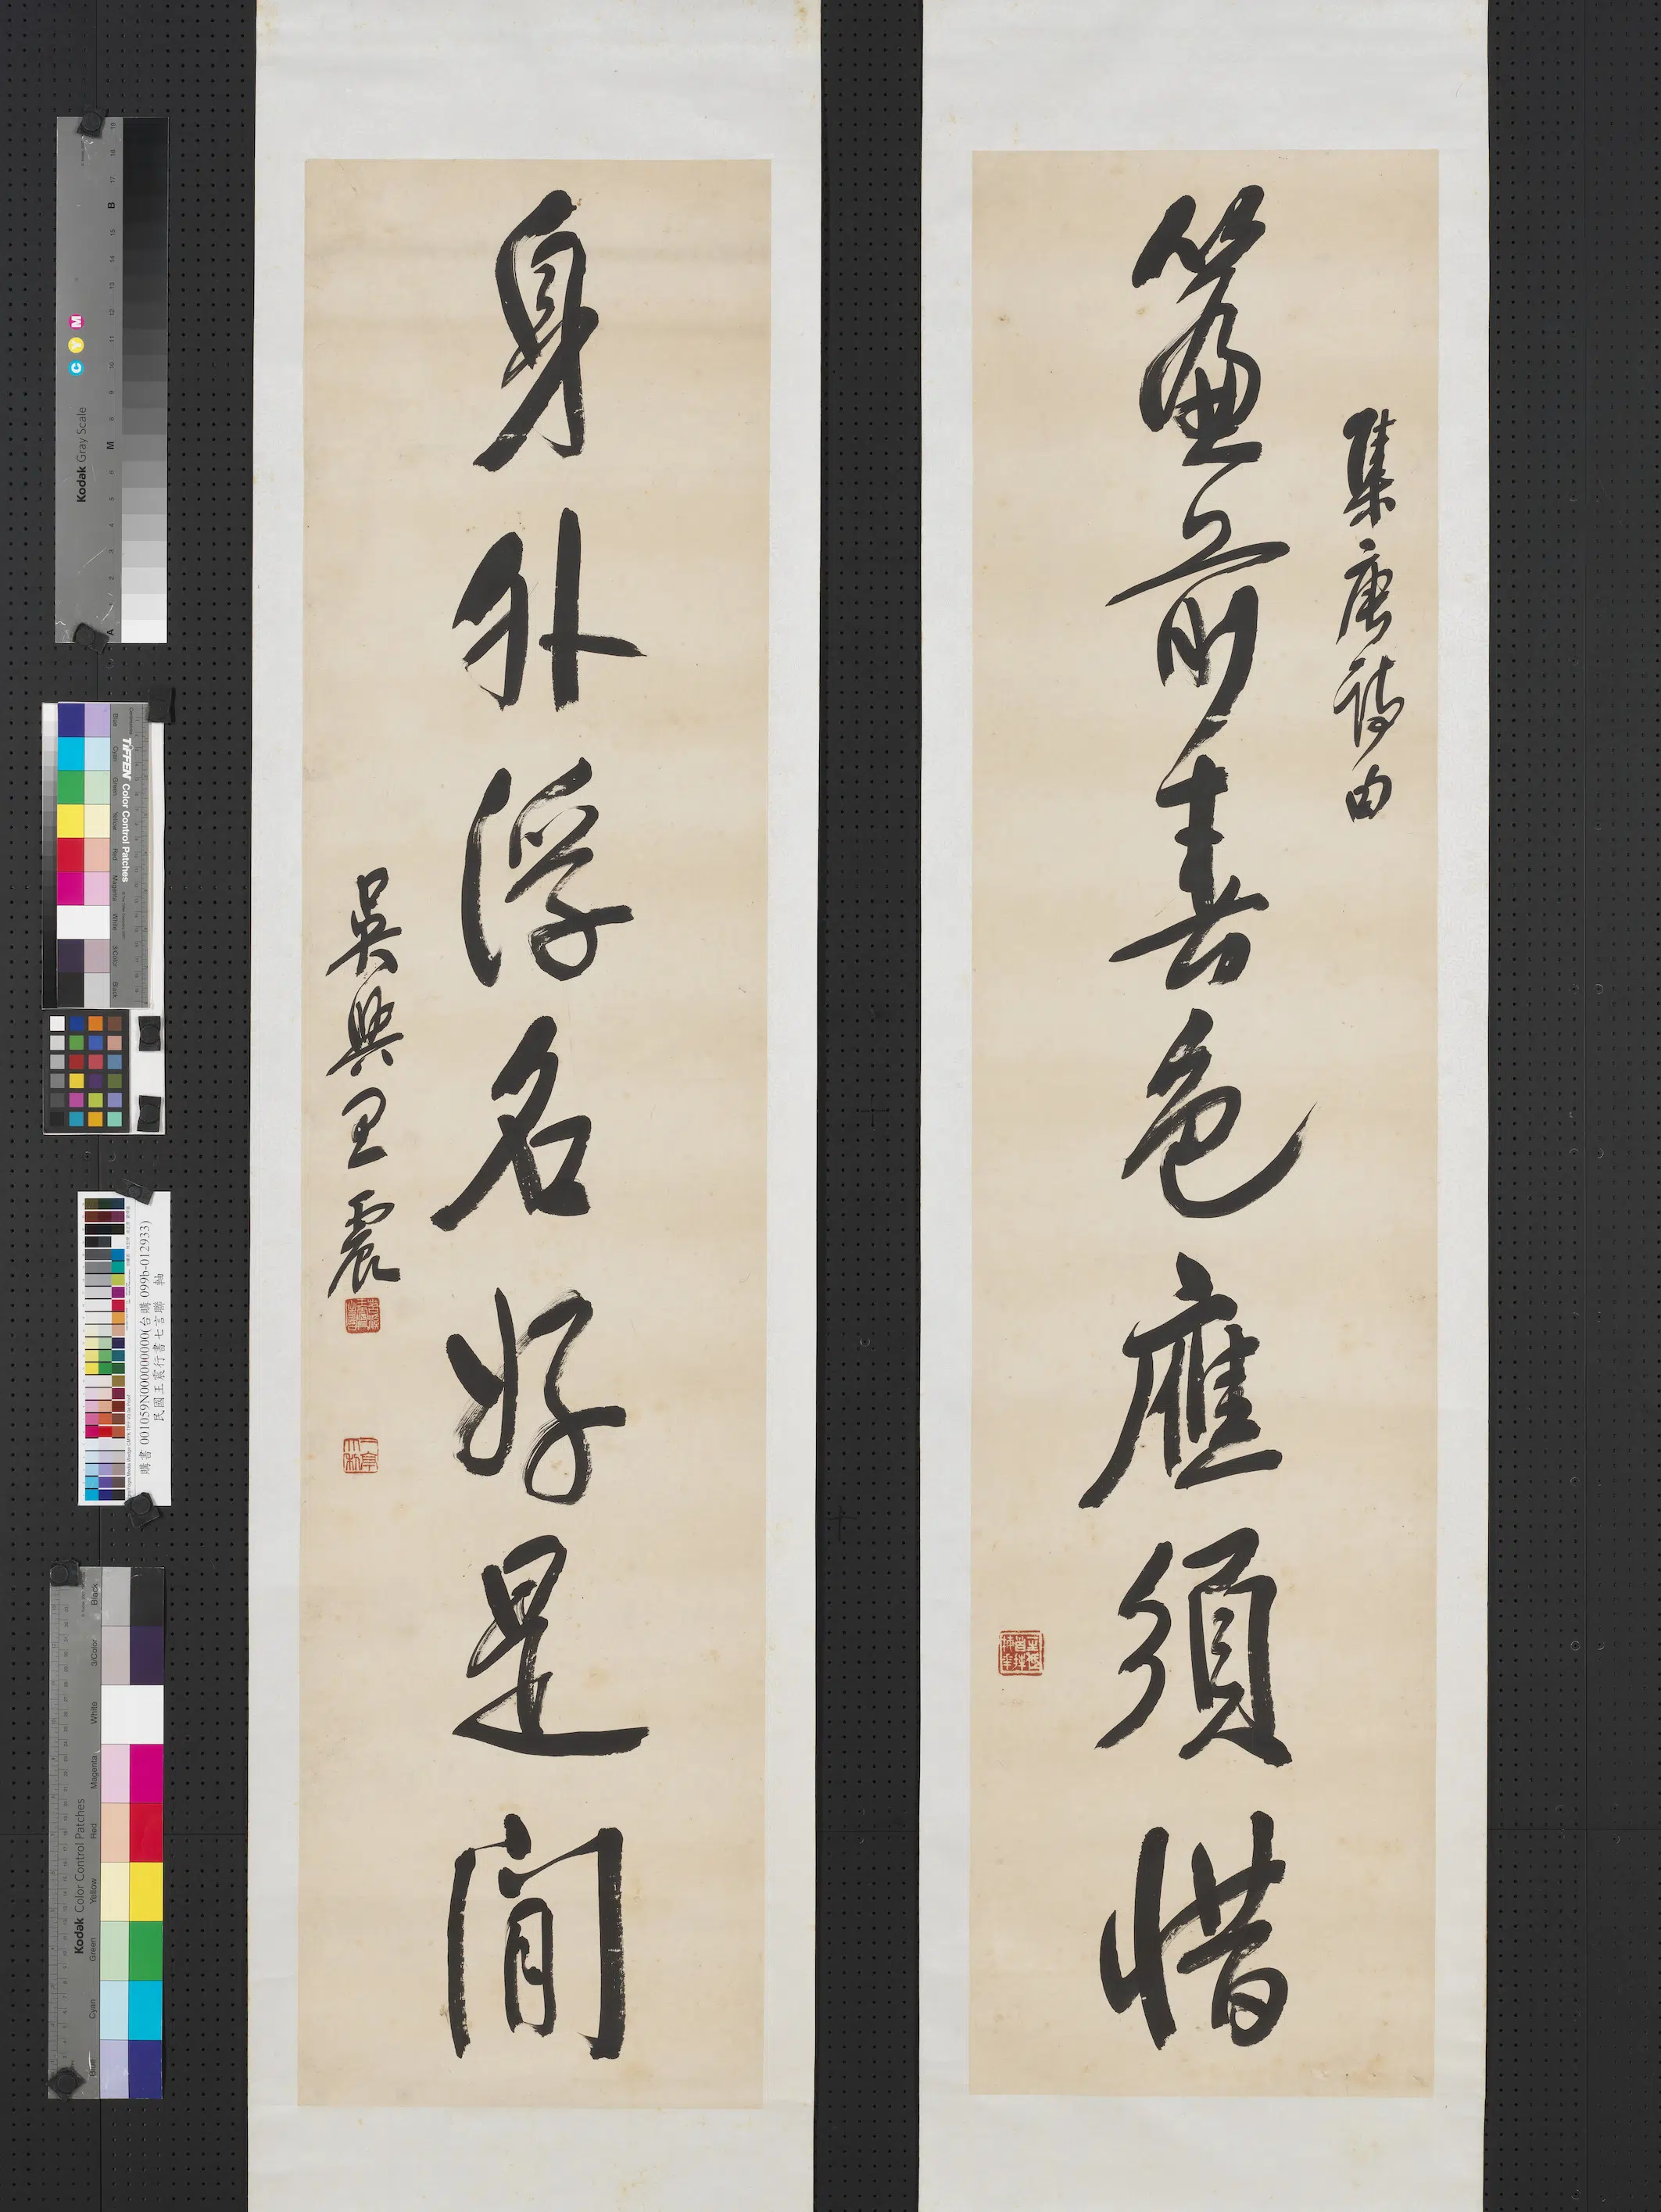 集唐詩句
簾前春色應須惜
身外浮名好是閒
吳興王震
Kodak Gray Scale
C Y M
A M B
TIFFEN Color Control Patches
Blue Cyan Green Yellow Red Magenta White 3/Color Black
購書 001059N000000000(台購 099b-012933)
民國王震行書七言聯 軸
Kodak Color Control Patches
Blue Cyan Green Yellow Red Magenta White 3/Color Black